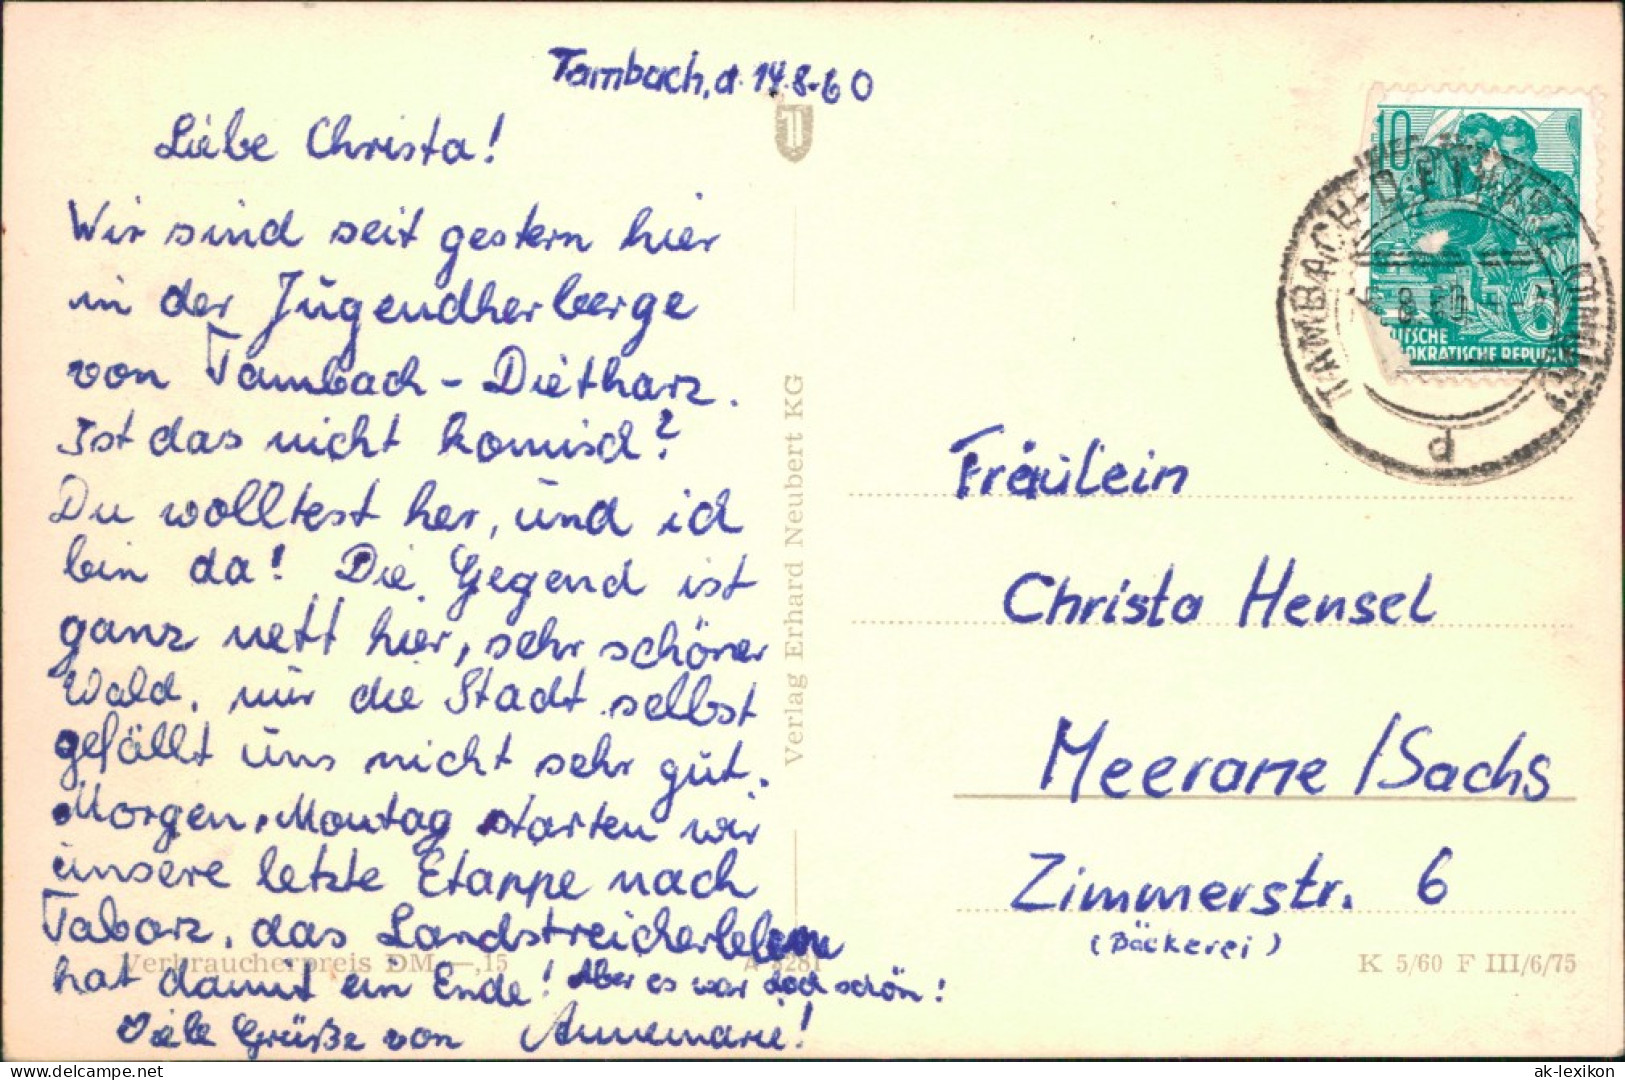 Tambach, d. 14.8.60
Liebe Christa!
Wir sind seit gestern hier
in der Jugendherberge
von Tambach-Dietharz.
Ist das nicht komisch?
Du wolltest her, und ich
bin da! Die Gegend ist
ganz nett hier, sehr schöner
Wald, nur die Stadt selbst
gefällt uns nicht sehr gut.
Morgen, Montag starten wir
unsere letzte Etappe nach
Tabarz, das Landstreicherleben
hat damit ein Ende! Aber es war doch schön!
Viele Grüße von Annemarie!
Verlag Erhard Neubert KG
Verbraucherpreis DM —,15
10
DEUTSCHE
DEMOKRATISCHE REPUBLIK
TAMBACH-DIETHARZ
8.60
d
Fräulein
Christa Hensel
Meerane /Sachs
Zimmerstr. 6
(Bäckerei)
K 5/60 F III/6/75
www.delcampe.net
ak-lexikon